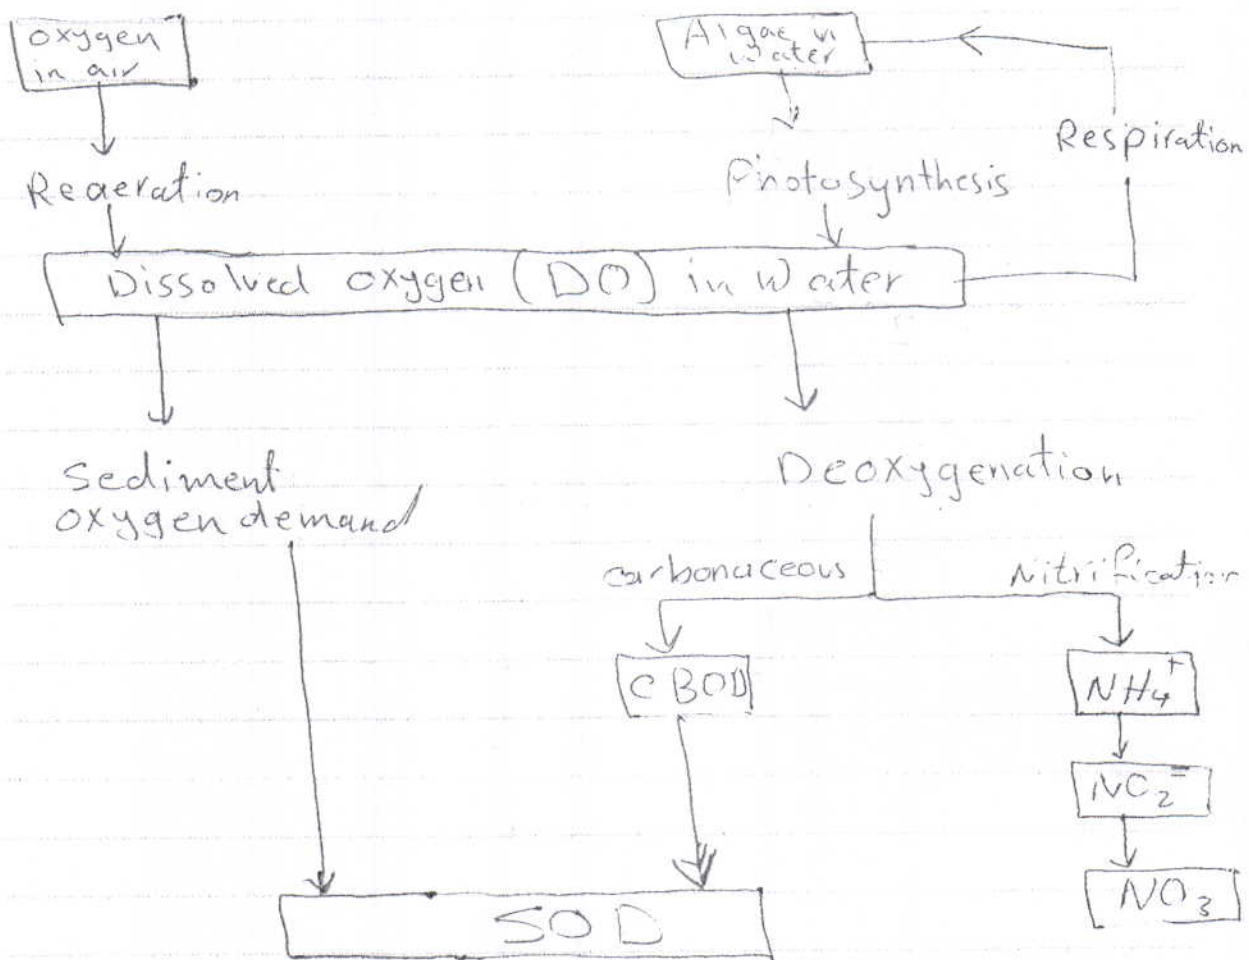 oxygen
in air
Algae in
water
Respiration
Reaeration
Photosynthesis
Dissolved oxygen (DO) in Water
Sediment
oxygen demand
Deoxygenation
carbonaceous
Nitrification
CBOD
NH₄⁺
NO₂⁻
NO₃
SOD